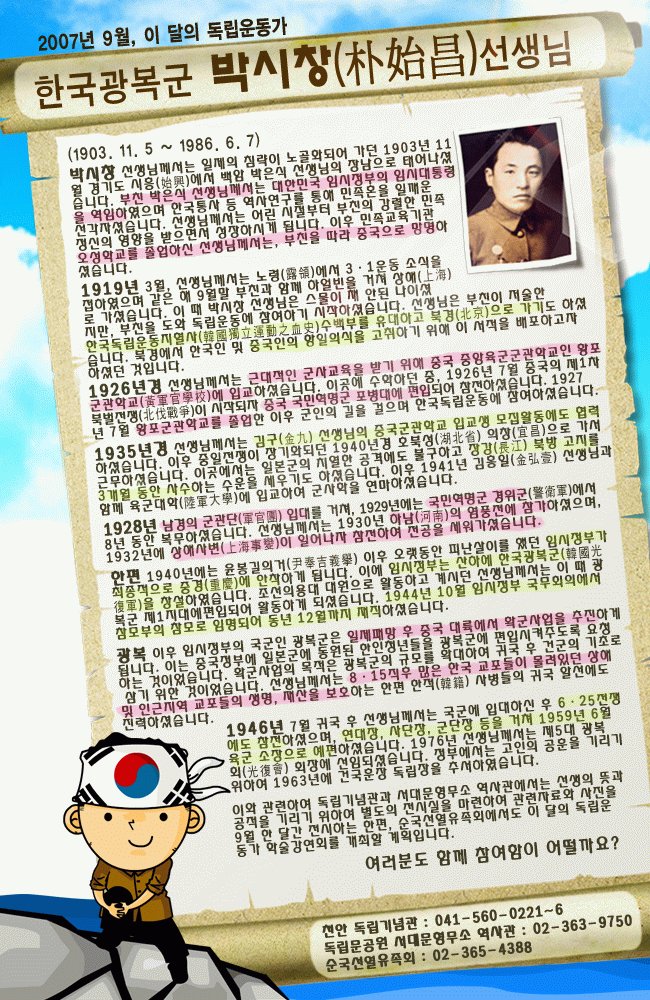 2007년 9월, 이 달의 독립운동가
한국광복군 박시창(朴始昌)선생님
(1903. 11. 5 ~ 1986. 6. 7)
박시창 선생님께서는 일제의 침략이 노골화되어 가던 1903년 11
월 경기도 시흥(始興)에서 백암 박은식 선생님의 장남으로 태어나셨
습니다. 부친 박은식 선생님께서는 대한민국 임시정부의 임시대통령
을 역임하였으며 한국통사 등 역사연구를 통해 민족혼을 일깨운
선각자셨습니다. 선생님께서는 어린 시절부터 부친의 강렬한 민족
정신의 영향을 받으면서 성장하시게 됩니다. 이후 민족교육기관
오성학교를 졸업하신 선생님께서는, 부친을 따라 중국으로 망명하
셨습니다.
1919년 3월, 선생님께서는 노령(露領)에서 3·1운동 소식을
접하였으며 같은 해 9월말 부친과 함께 하얼빈을 거쳐 상해(上海)
로 가셨습니다. 이 때 박시창 선생님은 스물이 채 안된 나이셨
지만, 부친을 도와 독립운동에 참여하기 시작하셨습니다. 선생님은 부친이 저술한
한국독립운동지혈사(韓國獨立運動之血史)수백부를 휴대하고 북경(北京)으로 가기도 하셨
습니다. 북경에서 한국인 및 중국인의 항일의식을 고취하기 위해 이 서적을 배포하고자
하셨던 것입니다.
1926년경 선생님께서는 근대적인 군사교육을 받기 위해 중국 중앙육군군관학교인 황포
군관학교(黃軍官學校)에 입교하셨습니다. 이곳에 수학하던 중, 1926년 7월 중국의 제1차
북벌전쟁(北伐戰爭)이 시작되자 중국 국민혁명군 포병대에 편입되어 참전하셨습니다. 1927
년 7월 황포군관학교를 졸업한 이후 군인의 길을 걸으며 한국독립운동에 참여하셨습니다.
1935년경 선생님께서는 김구(金九) 선생님의 중국군관학교 입교생 모집활동에도 협력
하셨습니다. 이후 중일전쟁이 장기화되던 1940년경 호북성(湖北省) 의창(宜昌)으로 가서
근무하셨습니다. 이곳에서는 일본군의 치열한 공격에도 불구하고 장강(長江) 북방 고지를
3개월 동안 사수하는 수훈을 세우기도 하셨습니다. 이후 1941년 김홍일(金弘壹) 선생님과
함께 육군대학(陸軍大學)에 입교하여 군사학을 연마하셨습니다.
1928년 남경의 군관단(軍官團) 입대를 거쳐, 1929년에는 국민혁명군 경위군(警衛軍)에서
8년 동안 복무하셨습니다. 선생님께서는 1930년 하남(河南)의 염풍전에 참가하셨으며,
1932년에 상해사변(上海事變)이 일어나자 참전하여 전공을 세워가셨습니다.
한편 1940년에는 윤봉길의거(尹奉吉義擧) 이후 오랫동안 피난살이를 했던 임시정부가
최종적으로 중경(重慶)에 안착하게 됩니다. 이에 임시정부는 산하에 한국광복군(韓國光
復軍)을 창설하였습니다. 조선의용대 대원으로 활동하고 계시던 선생님께서는 이 때 광
복군 제1지대에편입되어 활동하게 되셨습니다. 1944년 10월 임시정부 국무회의에서
참모부의 참모로 임명되어 동년 12월까지 재직하셨습니다.
광복 이후 임시정부의 국군인 광복군은 일제패망 후 중국 대륙에서 확군사업을 추진하게
됩니다. 이는 중국정부에 일본군에 동원된 한인청년들을 광복군에 편입시켜주도록 요청
하는 것이었습니다. 확군사업의 목적은 광복군의 규모를 확대하여 귀국 후 건군의 기초로
삼기 위한 것이었습니다. 선생님께서는 8·15직후 많은 한국 교포들이 몰려있던 상해
및 인근지역 교포들의 생명, 재산을 보호하는 한편 한적(韓籍) 사병들의 귀국 알선에도
진력하셨습니다.
1946년 7월 귀국 후 선생님께서는 국군에 입대하신 후 6·25전쟁
에도 참전하셨으며, 연대장, 사단장, 군단장 등을 거쳐 1959년 6월
육군 소장으로 예편하셨습니다. 1976년 선생님께서는 제5대 광복
회(光復會) 회장에 선임되셨습니다. 정부에서는 고인의 공훈을 기리기
위하여 1963년에 건국훈장 독립장을 추서하였습니다.
이와 관련하여 독립기념관과 서대문형무소 역사관에서는 선생의 뜻과
공적을 기리기 위하여 별도의 전시실을 마련하여 관련자료와 사진을
9월 한 달간 전시하는 한편, 순국선열유족회에서도 이 달의 독립운
동가 학술강연회를 개최할 계획입니다.
여러분도 함께 참여함이 어떨까요?
천안 독립기념관 : 041-560-0221~6
독립문공원 서대문형무소 역사관 : 02-363-9750
순국선열유족회 : 02-365-4388